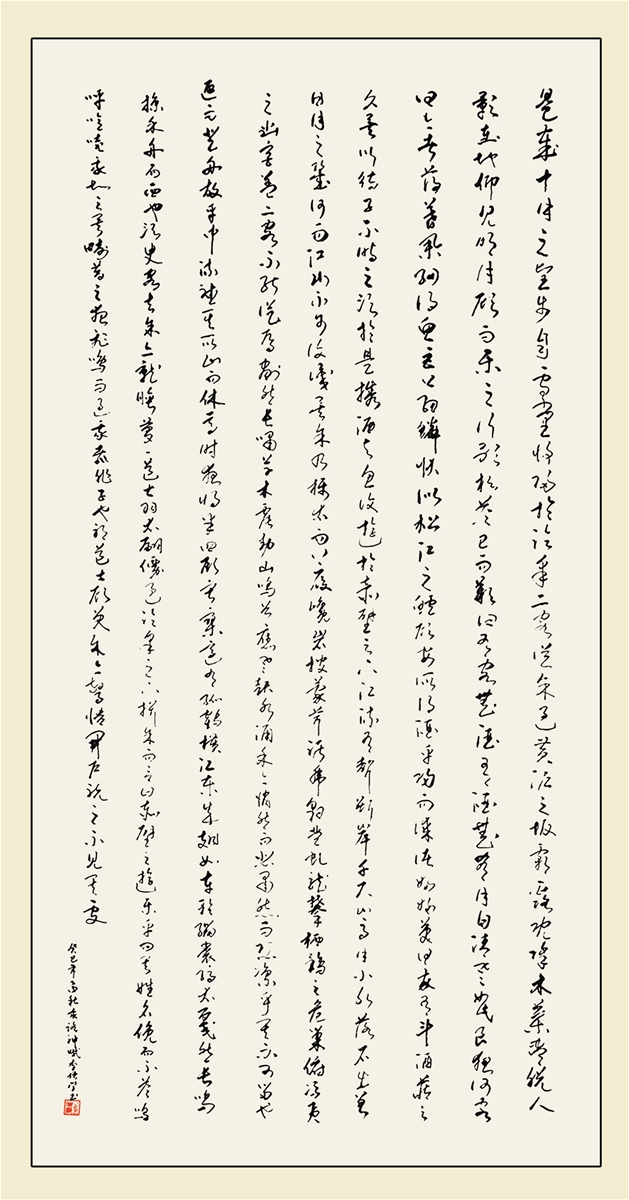 是歲十月之望步自雪堂將歸於臨皋二客從余過黃泥之坂霜露既降木葉盡脫人
影在地仰見明月顧而樂之行歌相答已而歎曰有客無酒有酒無肴月白風清如此良夜何客
曰今者薄暮舉網得魚巨口細鱗狀似松江之鱸顧安所得酒乎歸而謀諸婦婦曰我有斗酒藏之
久矣以待子不時之須於是攜酒與魚復遊於赤壁之下江流有聲斷岸千尺山高月小水落石出曾
日月之幾何而江山不可復識矣余乃攝衣而上履巉岩披蒙茸踞虎豹登虬龍攀棲鶻之危巢俯馮夷
之幽宮蓋二客不能從焉劃然長嘯草木震動山鳴谷應風起水涌余亦悄然而悲肅然而恐凜乎其不可留也
返而登舟放乎中流聽其所止而休焉時夜將半四顧寂寥適有孤鶴橫江東來翅如車輪玄裳縞衣戛然長鳴
掠余舟而西也須臾客去余亦就睡夢一道士羽衣翩僊過臨皋之下揖余而言曰赤壁之遊樂乎問其姓名俛而不答嗚
呼噫嘻我知之矣疇昔之夜飛鳴而過我者非子也耶道士顧笑余亦驚悟開戶視之不見其處
癸巳年